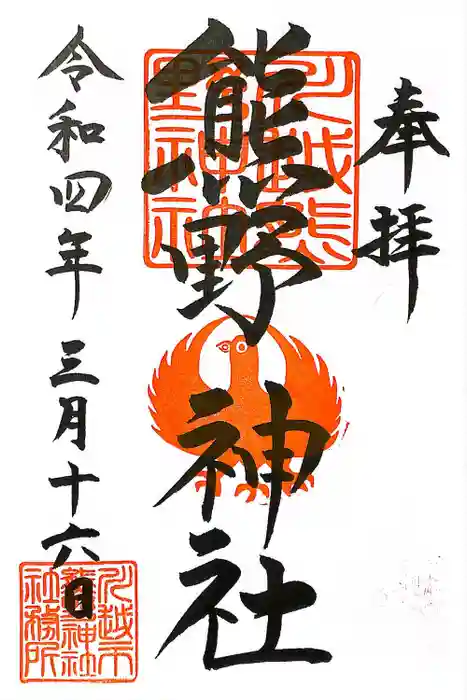 奉拝
熊野神社
令和四年三月十六日
川越熊野神社
川越市熊野神社社務所